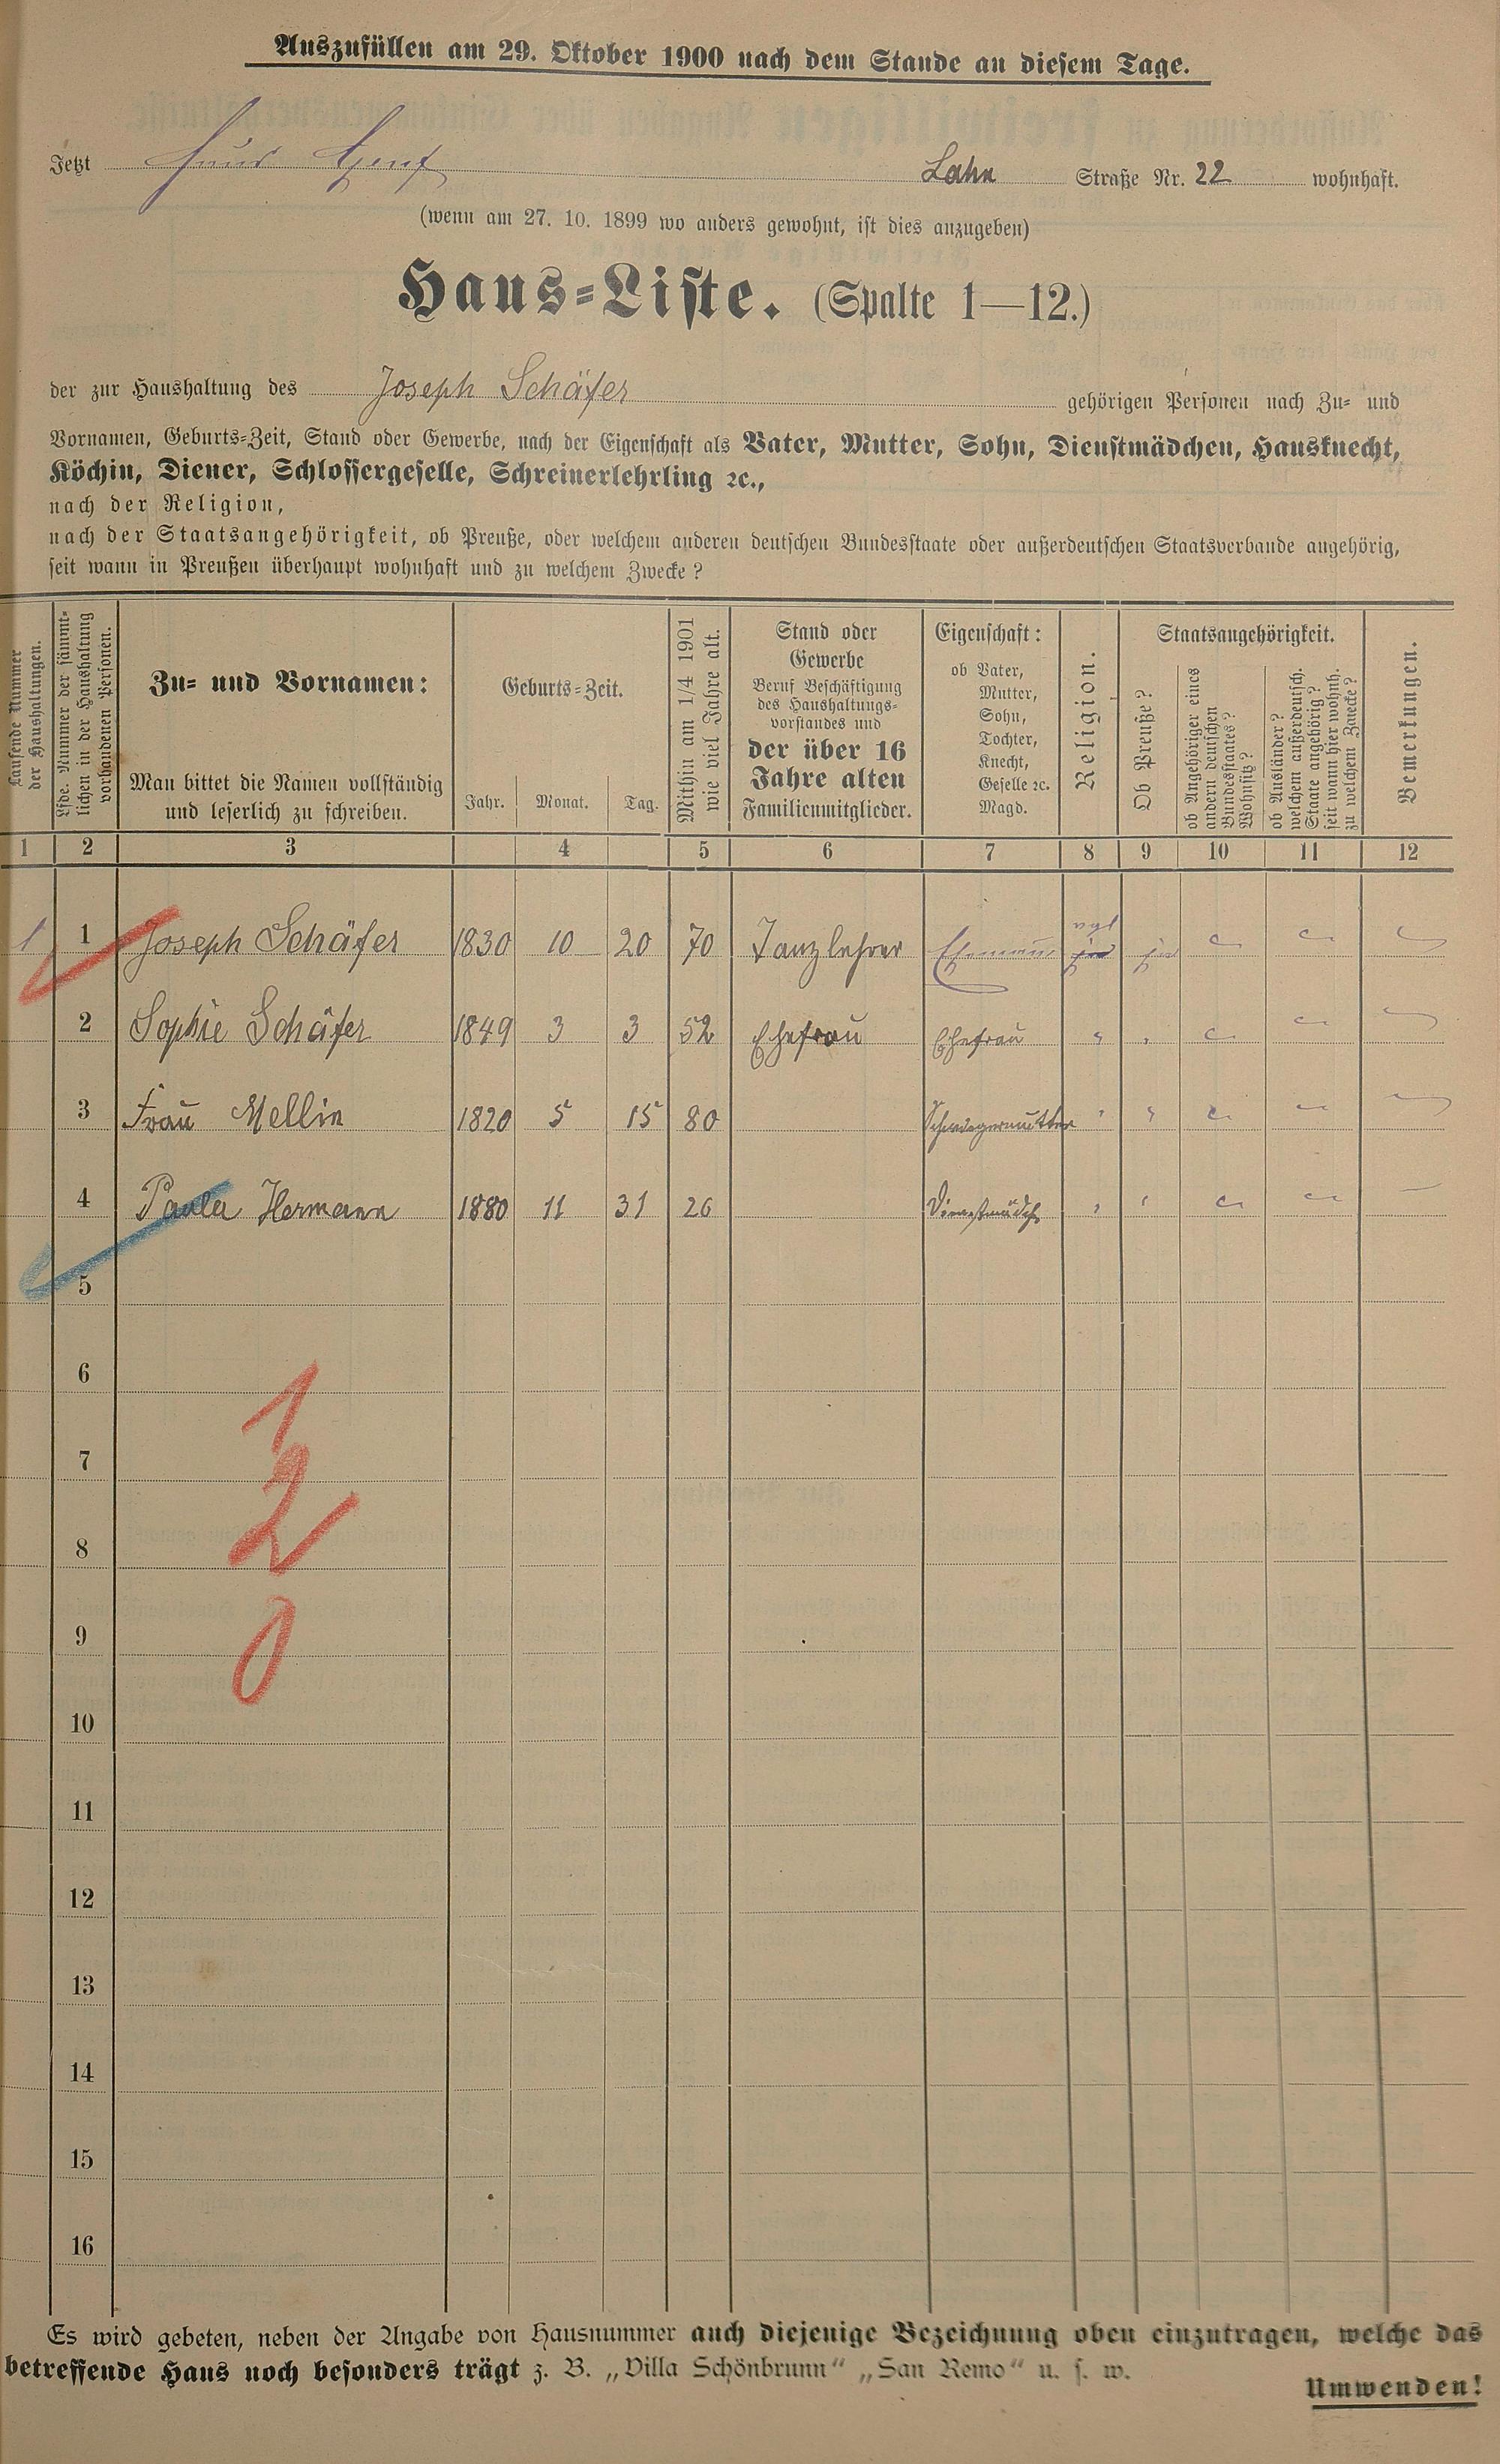 Auszufüllen am 29. Oktober 1900 nach dem Stande an diesem Tage.
Jetzt Haus Genf Lahn Straße Nr. 22 wohnhaft.
(wenn am 27. 10. 1899 wo anders gewohnt, ist dies anzugeben)
Haus-Liste. (Spalte 1—12.)
der zur Haushaltung des Joseph Schäfer gehörigen Personen nach Zu- und
Vornamen, Geburts-Zeit, Stand oder Gewerbe, nach der Eigenschaft als Vater, Mutter, Sohn, Dienstmädchen, Hausknecht,
Köchin, Diener, Schlossergeselle, Schreinerlehrling ꝛc.,
nach der Religion,
nach der Staatsangehörigkeit, ob Preuße, oder welchem anderen deutschen Bundesstaate oder außerdeutschen Staatsverbande angehörig,
seit wann in Preußen überhaupt wohnhaft und zu welchem Zwecke?
Laufende Nummer
der Haushaltungen.
Lfde. Nummer der sämmt-
lichen in der Haushaltung
vorhandenen Personen.
Zu- und Vornamen:
Man bittet die Namen vollständig
und leserlich zu schreiben.
Geburts-Zeit.
Jahr. Monat. Tag.
Mithin am 1/4 1901
wie viel Jahre alt.
Stand oder
Gewerbe
Beruf Beschäftigung
des Haushaltungs-
vorstandes und
der über 16
Jahre alten
Familienmitglieder.
Eigenschaft:
ob Vater,
Mutter,
Sohn,
Tochter,
Knecht,
Geselle ꝛc.
Magd.
Religion.
Staatsangehörigkeit.
Ob Preuße?
ob Angehöriger eines
andern deutschen
Bundesstaates?
Wohnsitz?
ob Ausländer?
welchem außerdeutsch.
Staate angehörig?
seit wann hier wohnh.
zu welchem Zwecke?
Bemerkungen.
1 2 3 4 5 6 7 8 9 10 11 12
1 1 Joseph Schäfer 1830 10 20 70 Tanzlehrer Ehemann ja
2 Sophie Schäfer 1849 3 3 52 Ehefrau Ehefrau " "
3 Frau Mellin 1820 5 15 80 Schwiegermutter " "
4 Paula Hermann 1880 11 31 26 Dienstmädch " "
5
6
1
7
2
8
9
0
10
11
12
13
14
15
16
Es wird gebeten, neben der Angabe von Hausnummer auch diejenige Bezeichnung oben einzutragen, welche das
betreffende Haus noch besonders trägt z. B. „Villa Schönbrunn“ „San Remo“ u. s. w.
Umwenden!